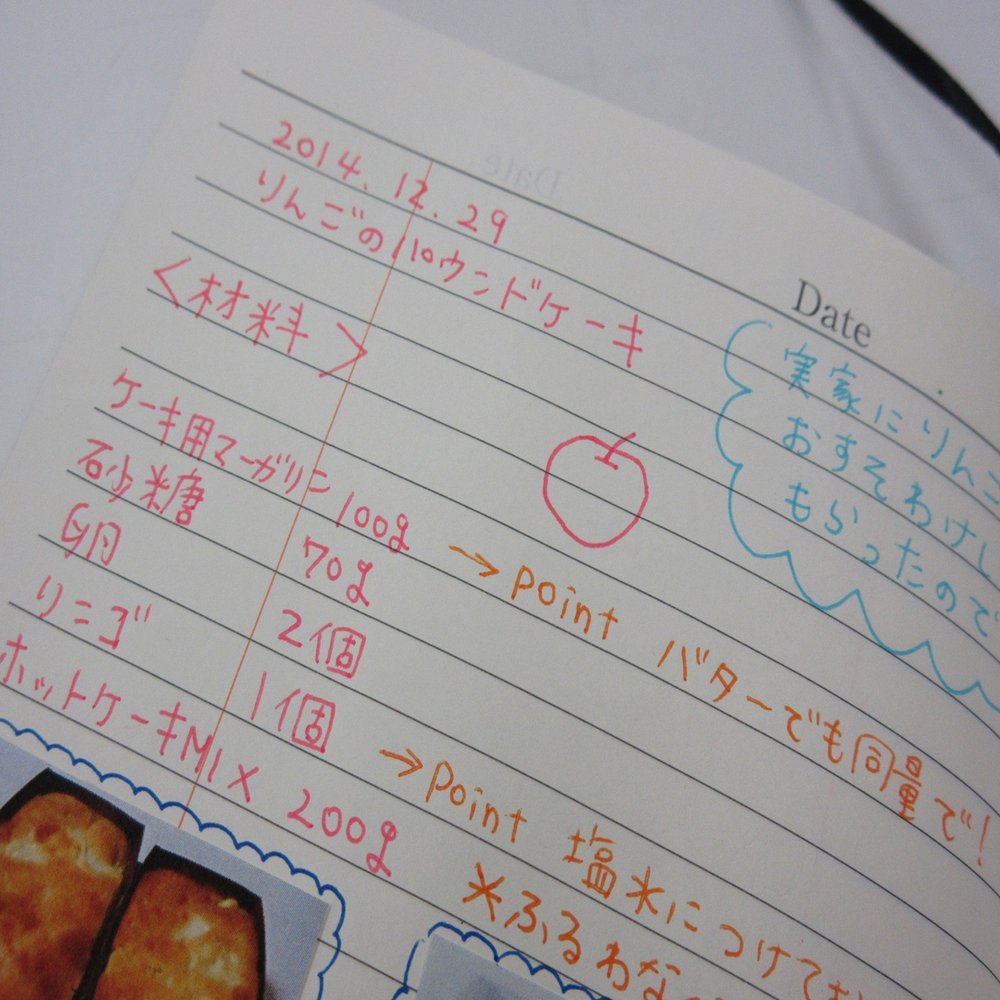 2014.12.29
りんごのパウンドケーキ
Date
<材料>
実家にりんご
おすそわけし
もらったので
ケーキ用マーガリン 100g
→ point バターでも同量で!
砂糖 70g
卵 2個
リンゴ 1個
→ point 塩水につけて
ホットケーキMIX 200g
※ふるわな